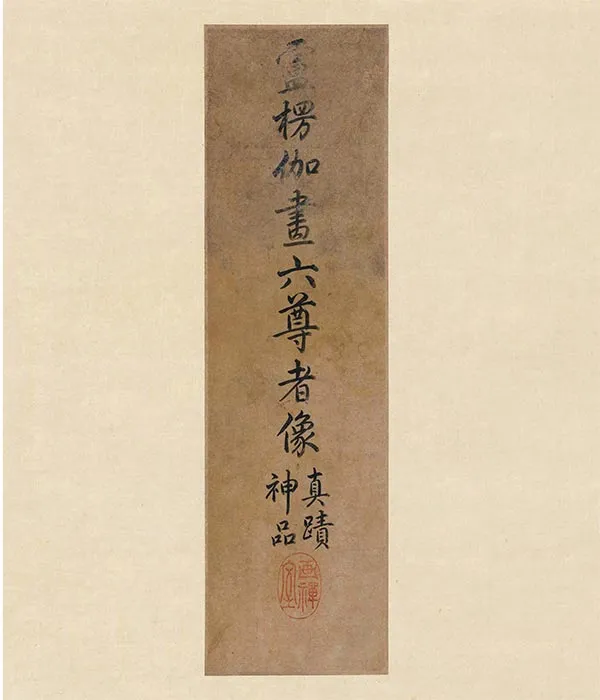 盧楞伽畫六尊者像
真蹟
神品
畫禪
室